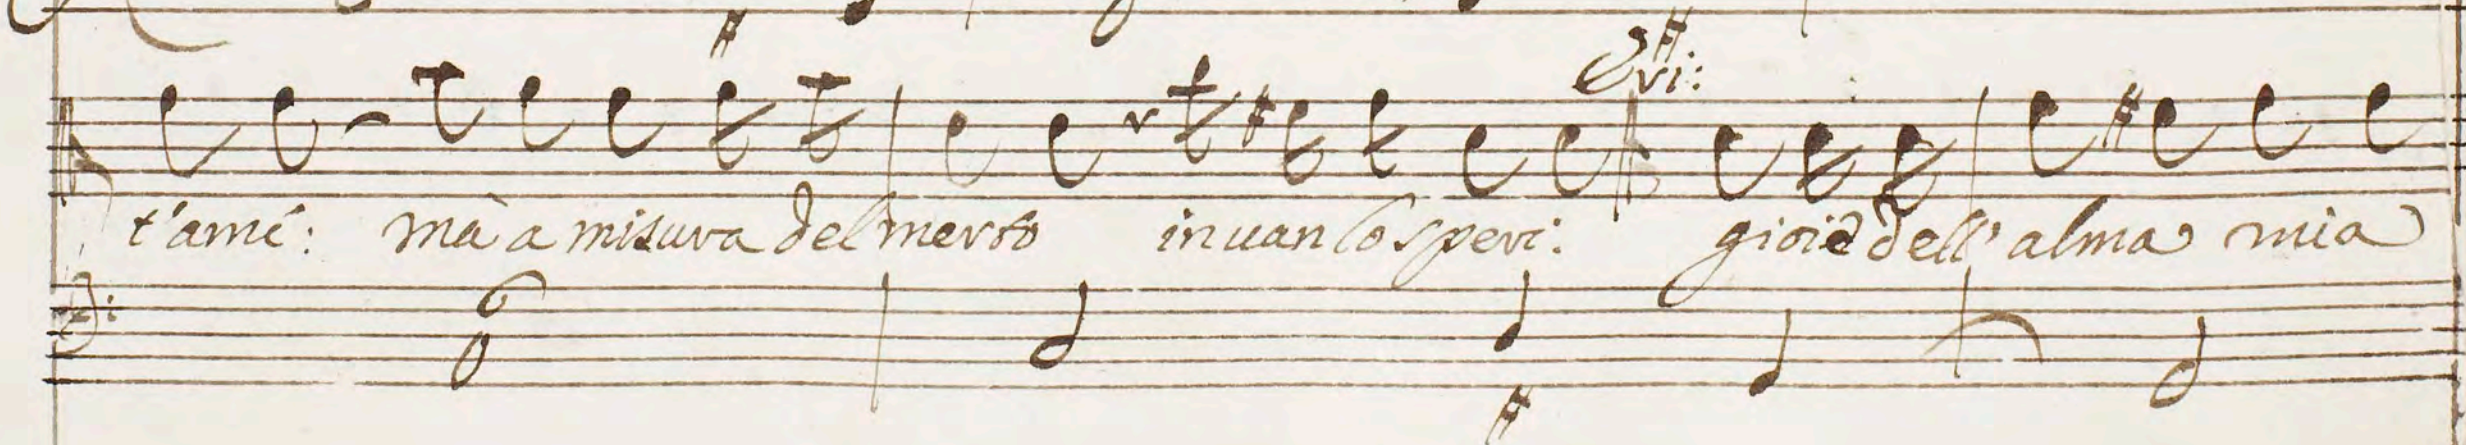 Evi:
t'ami: mà a misura del merto in uan lo speri: gioie dell' alma mia